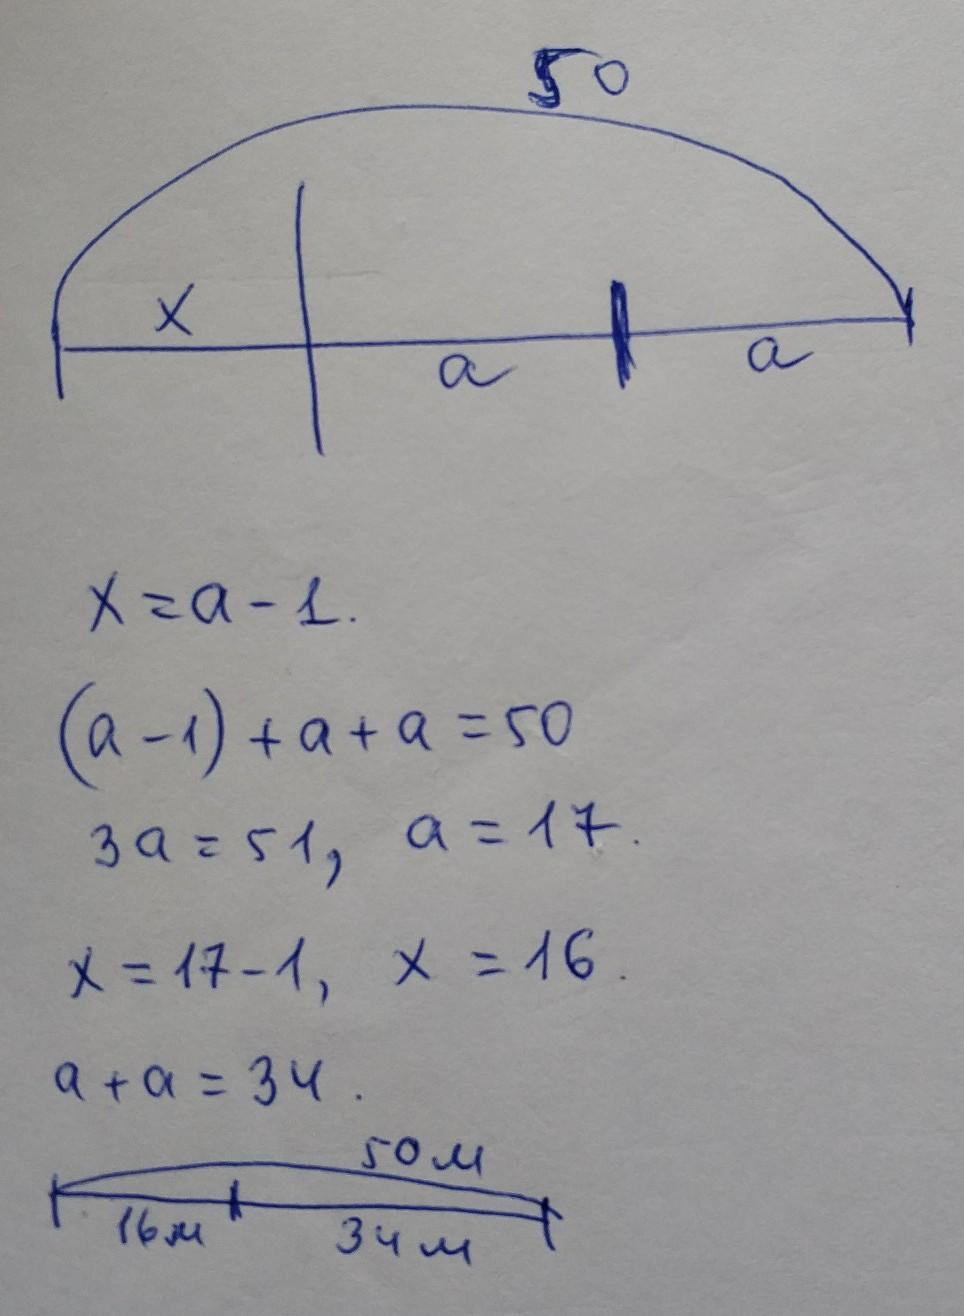 50
x
a
a
x = a - 1.
(a - 1) + a + a = 50
3a = 51, a = 17.
x = 17 - 1, x = 16.
a + a = 34.
50м
16м
34м